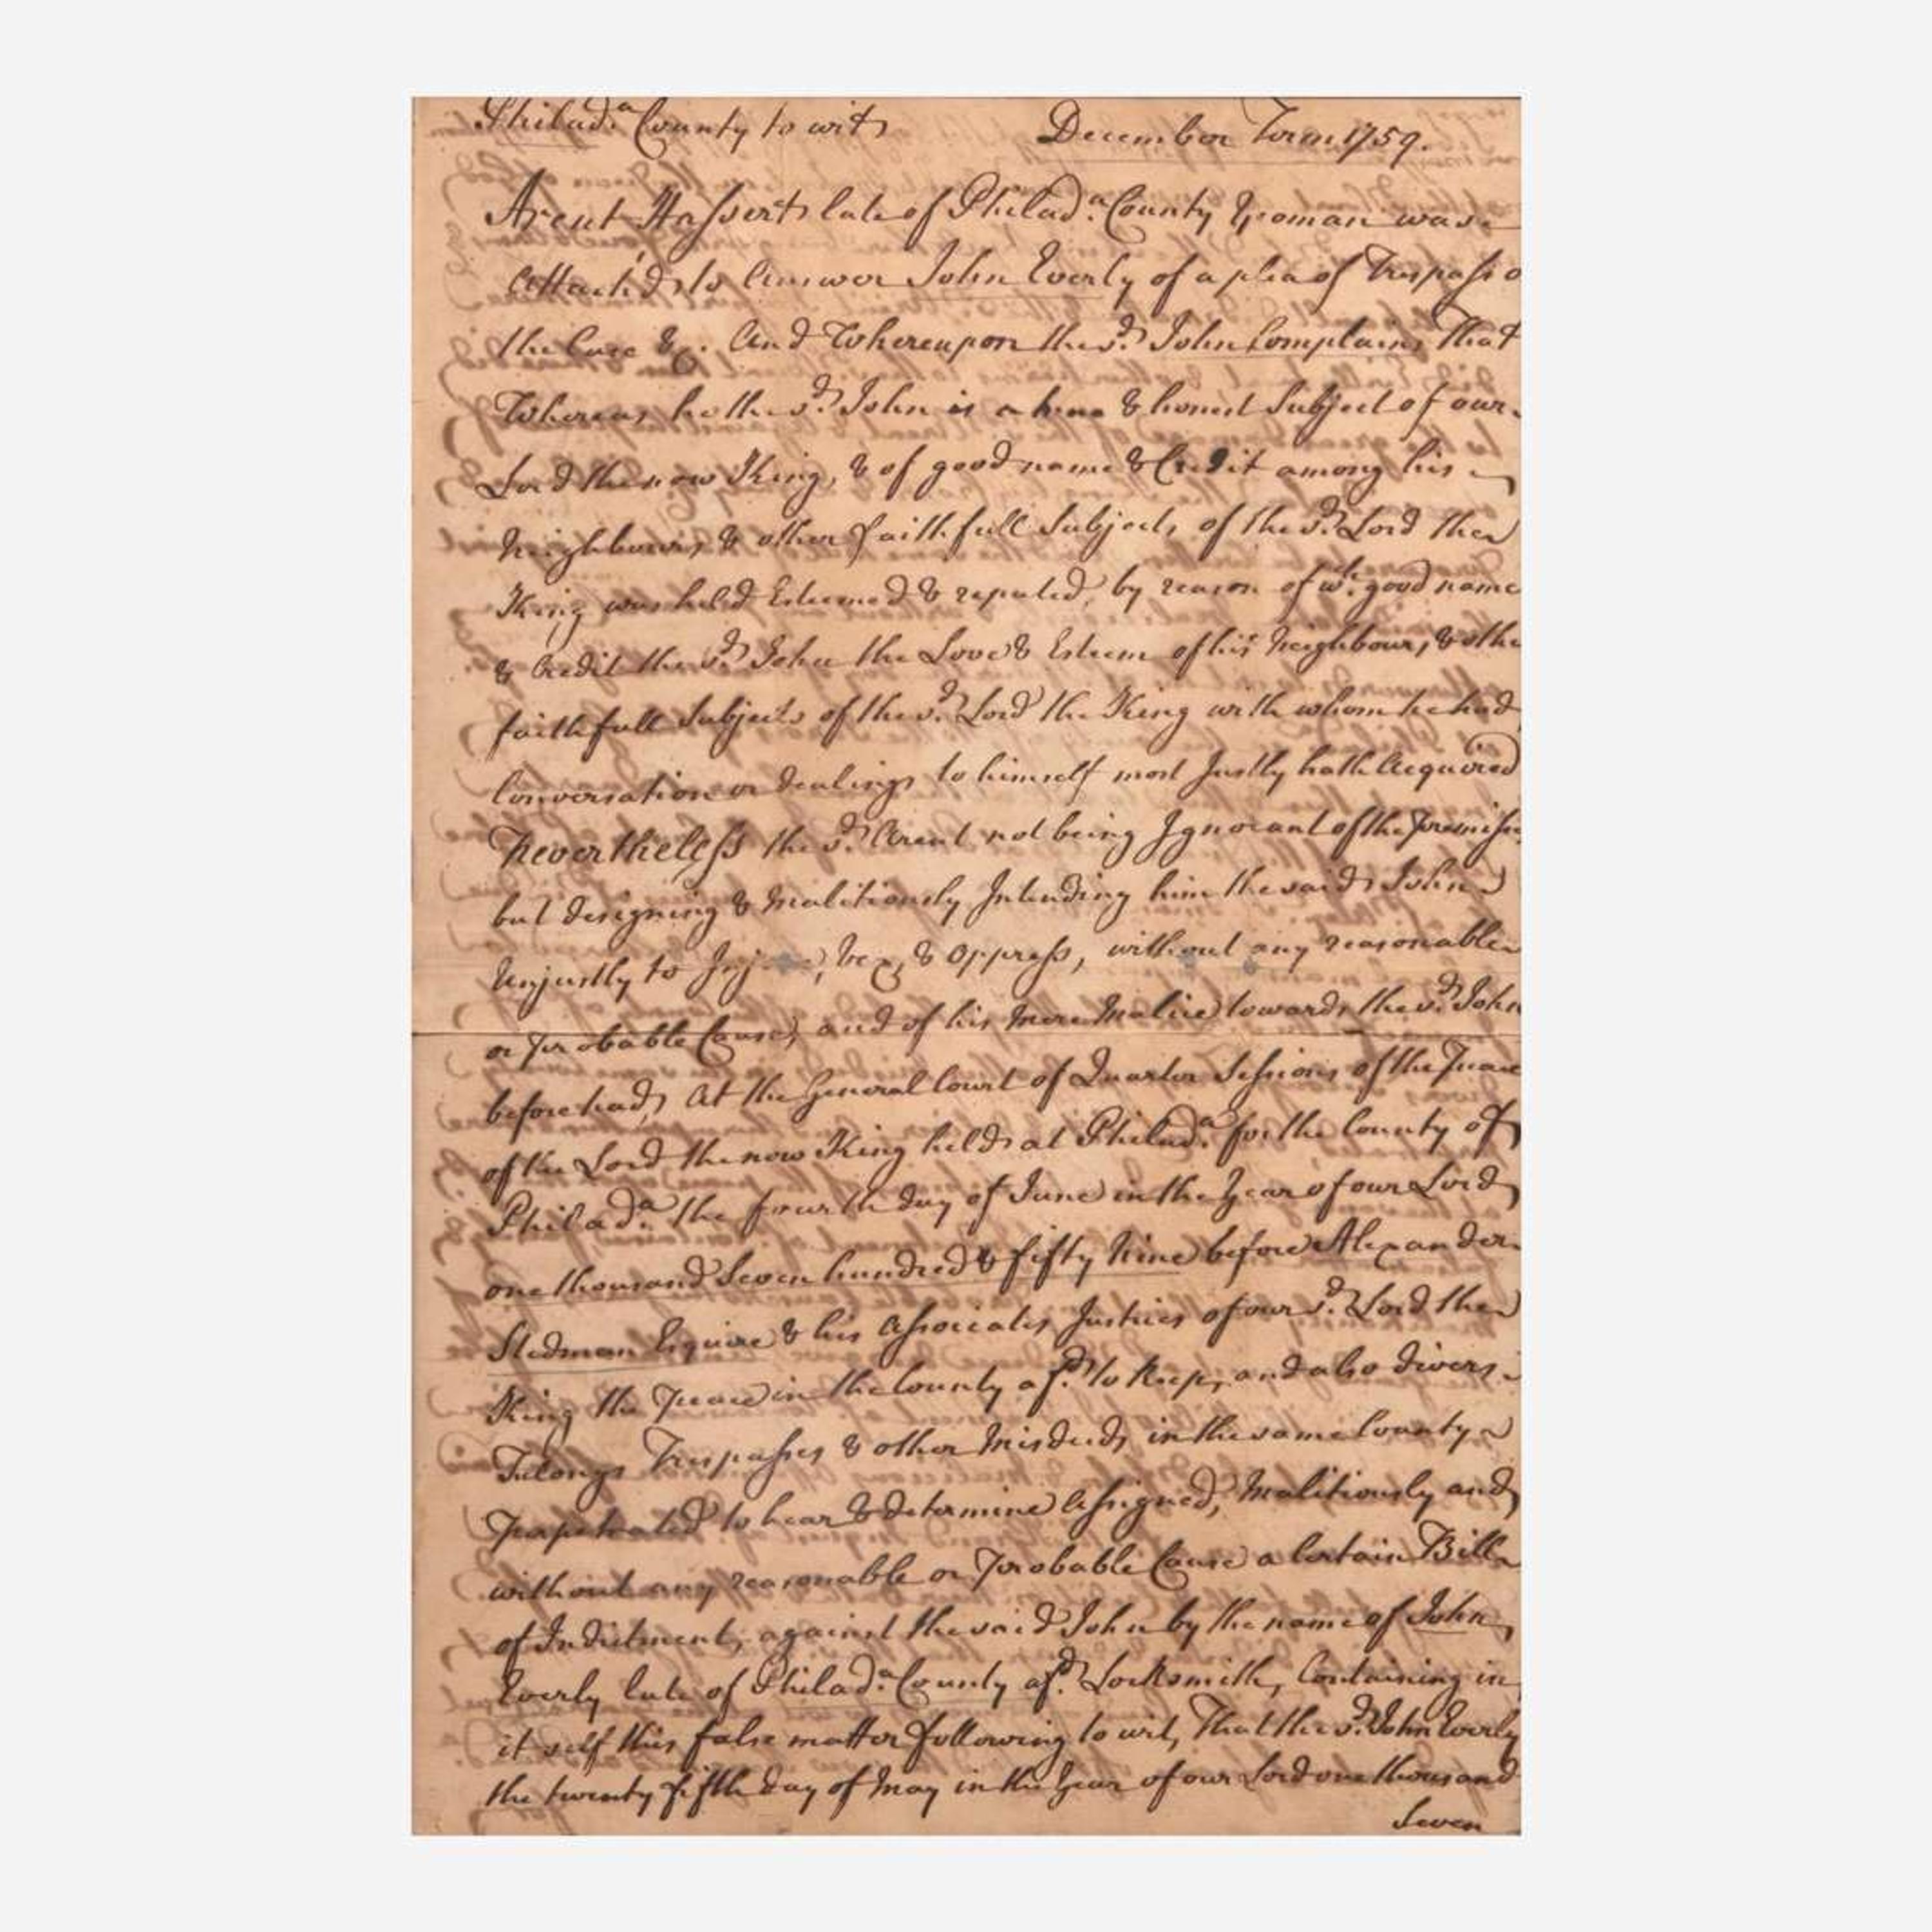 Philad.ª County to wit
December Term 1759.
Arent Hassert late of Philad.ª County Yeoman was
Attach'd to Answer John Everly of a plea of Trespass o
the Case &c. And Whereupon the s.d John Complains That
Whereas he the s.d John is a true & honest Subject of our
Lord the now King, & of good name & Credit among his
Neighbours & other faithfull Subjects of the s.d Lord the
King was held Esteemed & reputed, by reason of w.ch good name
& Credit the s.d John the Love & Esteem of his Neighbours, & othe
faithfull Subjects of the s.d Lord the King with whom he had
Conversation or dealings to himself most Justly hath Acquired
Nevertheless the s.d Arent not being Ignorant of the Premises
but designing & Malitiously Intending him the said John
Unjustly to vex, & Oppress, without any reasonable
or Probable Cause, and of his Mere Malice towards the s.d John
before had, At the General Court of Quarter Sessions of the Peace
of the Lord the now King held at Philad.ª for the County of
Philad.ª the fourth day of June in the Year of our Lord
one thousand Seven hundred & fifty Nine before Alexander
Stedman Esquire & his Associates Justices of our s.d Lord the
King the Peace in the County af.d to Keep, and also divers
Felonys Trespasses & other Misdeeds in the same County
Perpetrated to hear & determine Assigned, Malitiously and
without any reasonable or Probable Cause a Certain Bill
of Indictment, against the said John by the name of John
Everly late of Philad.ª County af.d Locksmith, Containing in
it self this false matter following to wit, That the s.d John Everly
the twenty fifth day of May in the Year of our Lord one thousand
Seven